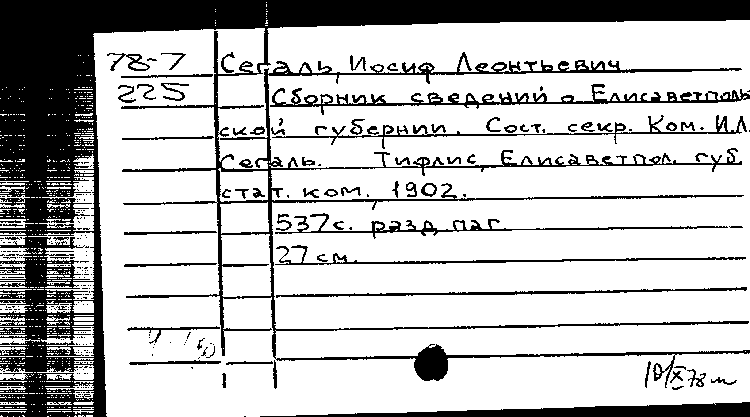 78-7 Сегаль, Иосиф Леонтьевич
225 Сборник сведений о Елисаветполь
ской губернии. Сост. секр. Ком. И.Л.
Сегаль. Тифлис, Елисаветпол. губ.
стат. ком., 1902.
537 с. разд. паг.
27 см.